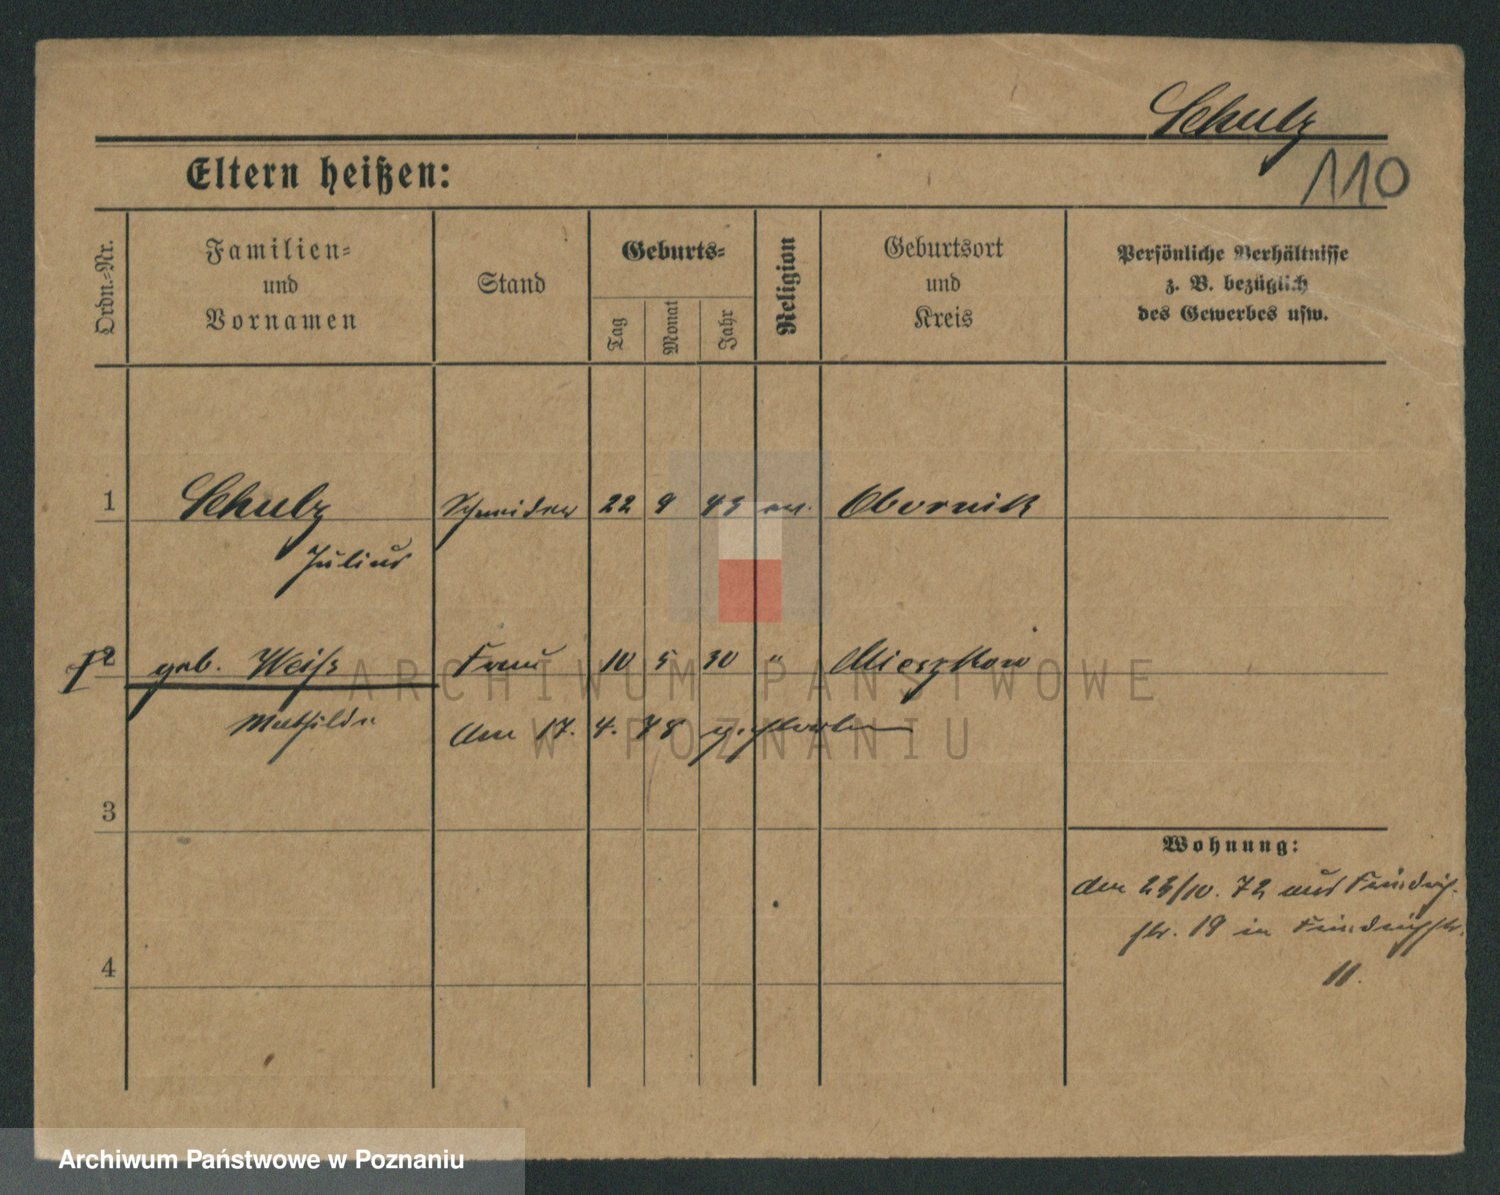 Schulz
110
Eltern heißen:
Ordn.-Nr.
Familien-
und
Vornamen
Stand
Geburts-
Tag
Monat
Jahr
Religion
Geburtsort
und
Kreis
Persönliche Verhältnisse
z. B. bezüglich
des Gewerbes usw.
1 Schulz Schneider 22 9 43 ev. Obornik
Julius
2 geb. Weiß Frau 10 5 30 " Mieszkow
Mathilde am 17. 4. 78 gestorben
3
Wohnung:
den 23/10. 72 aus Friedrich-
str. 19 in Friedrichstr.
11.
4
ARCHIWUM PAŃSTWOWE
W POZNANIU
Archiwum Państwowe w Poznaniu